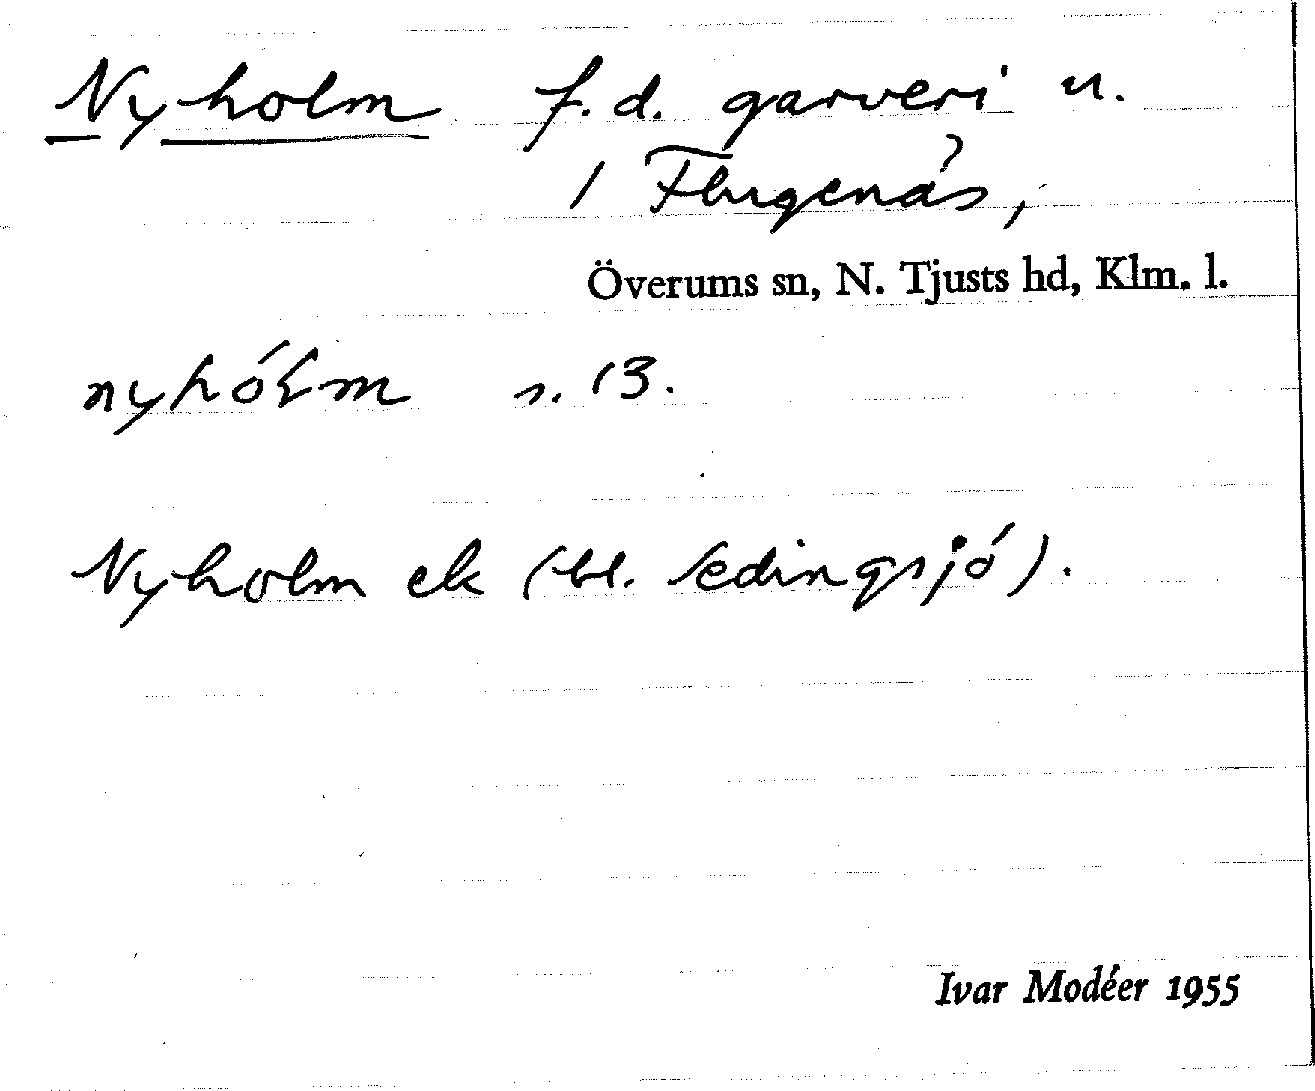 Nyholm f.d. garveri u.
/ Flugenäs,
Överums sn, N. Tjusts hd, Klm. l.
nyhólm s. 13.
Nyholm ek (bl. Ledingsjö).
Ivar Modéer 1955